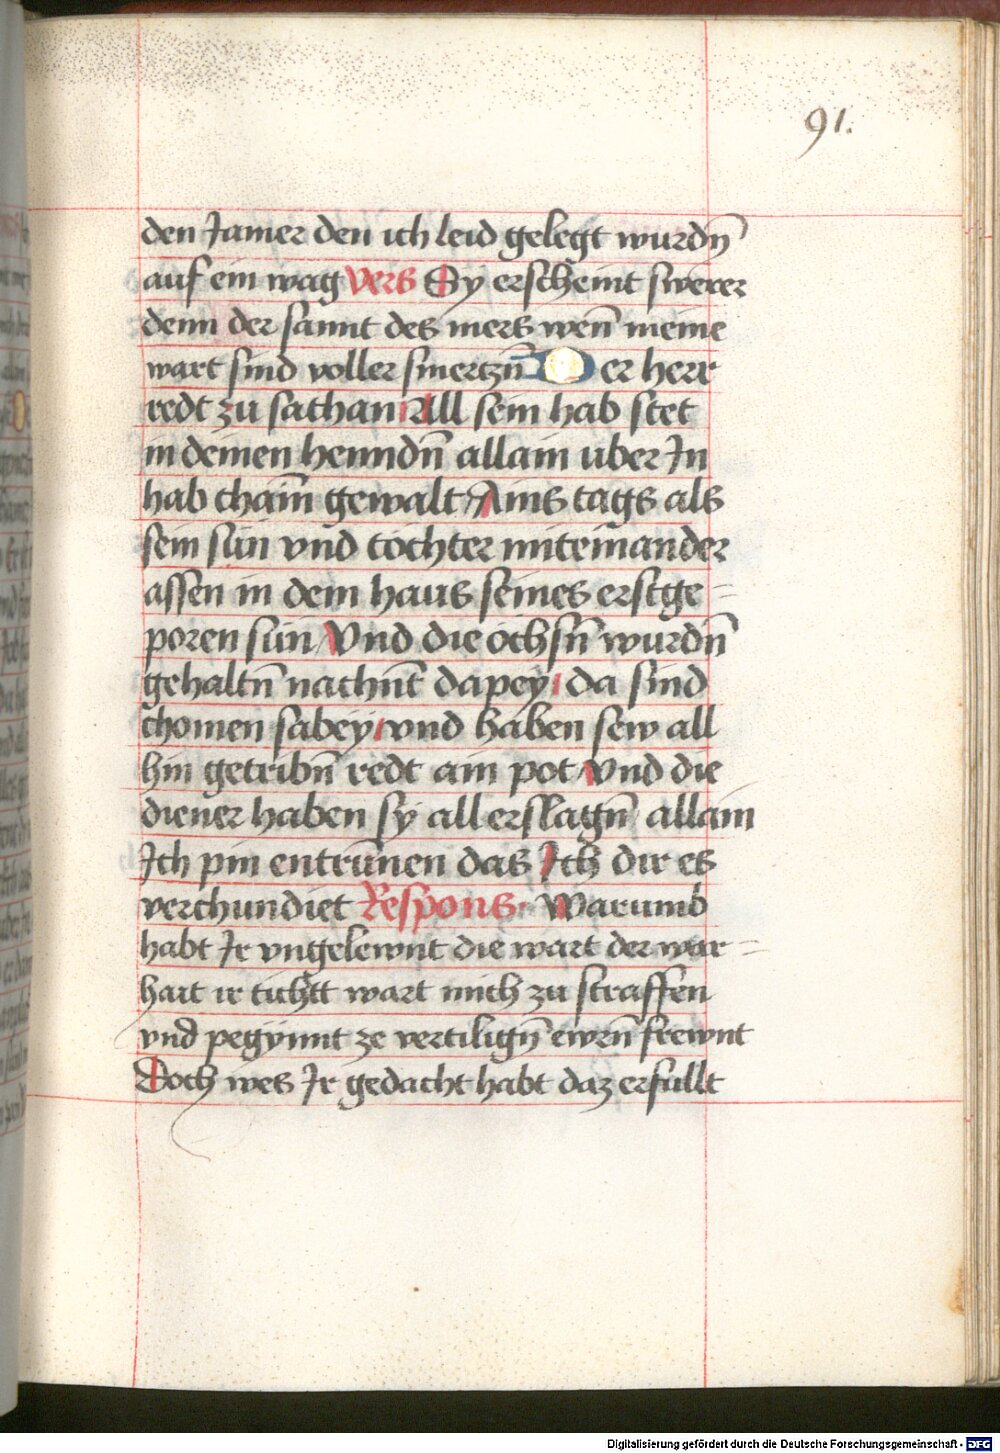 91.
den Jamer den ich leid gelegt wurdn̄
auf ein wag Vers Sy erscheint swerer
denn der sannt des mers wen̄ meine
wart sind voller smertzn̄ Der herr
redt zu sathan All sein hab stet
in deinen henndn̄ allain uber In
hab chain̄ gewalt / Ains tags als
sein sün vnd tochter miteinander
assen in dem haus seines erstge=
poren sün / Vnd die ochsn̄ wurdn̄
gehaltn̄ nachn̄t dapey / da sind
chomen sabey / vnd haben sew all
hin getribn̄ redt ain pot / Vnd die
diener haben sy all erslagn̄ allain
Ich pin entrunnen das Ich dir es
verchundiet Respons. Warumb
habt Ir vngelewnt die wart der war=
hait ir tichtt wart mich zu straffen
vnd pegynnt ze vertilign̄ ewrn̄ frewnt
Doch wes Ir gedacht habt daz erfullt
Digitalisierung gefördert durch die Deutsche Forschungsgemeinschaft - DFG